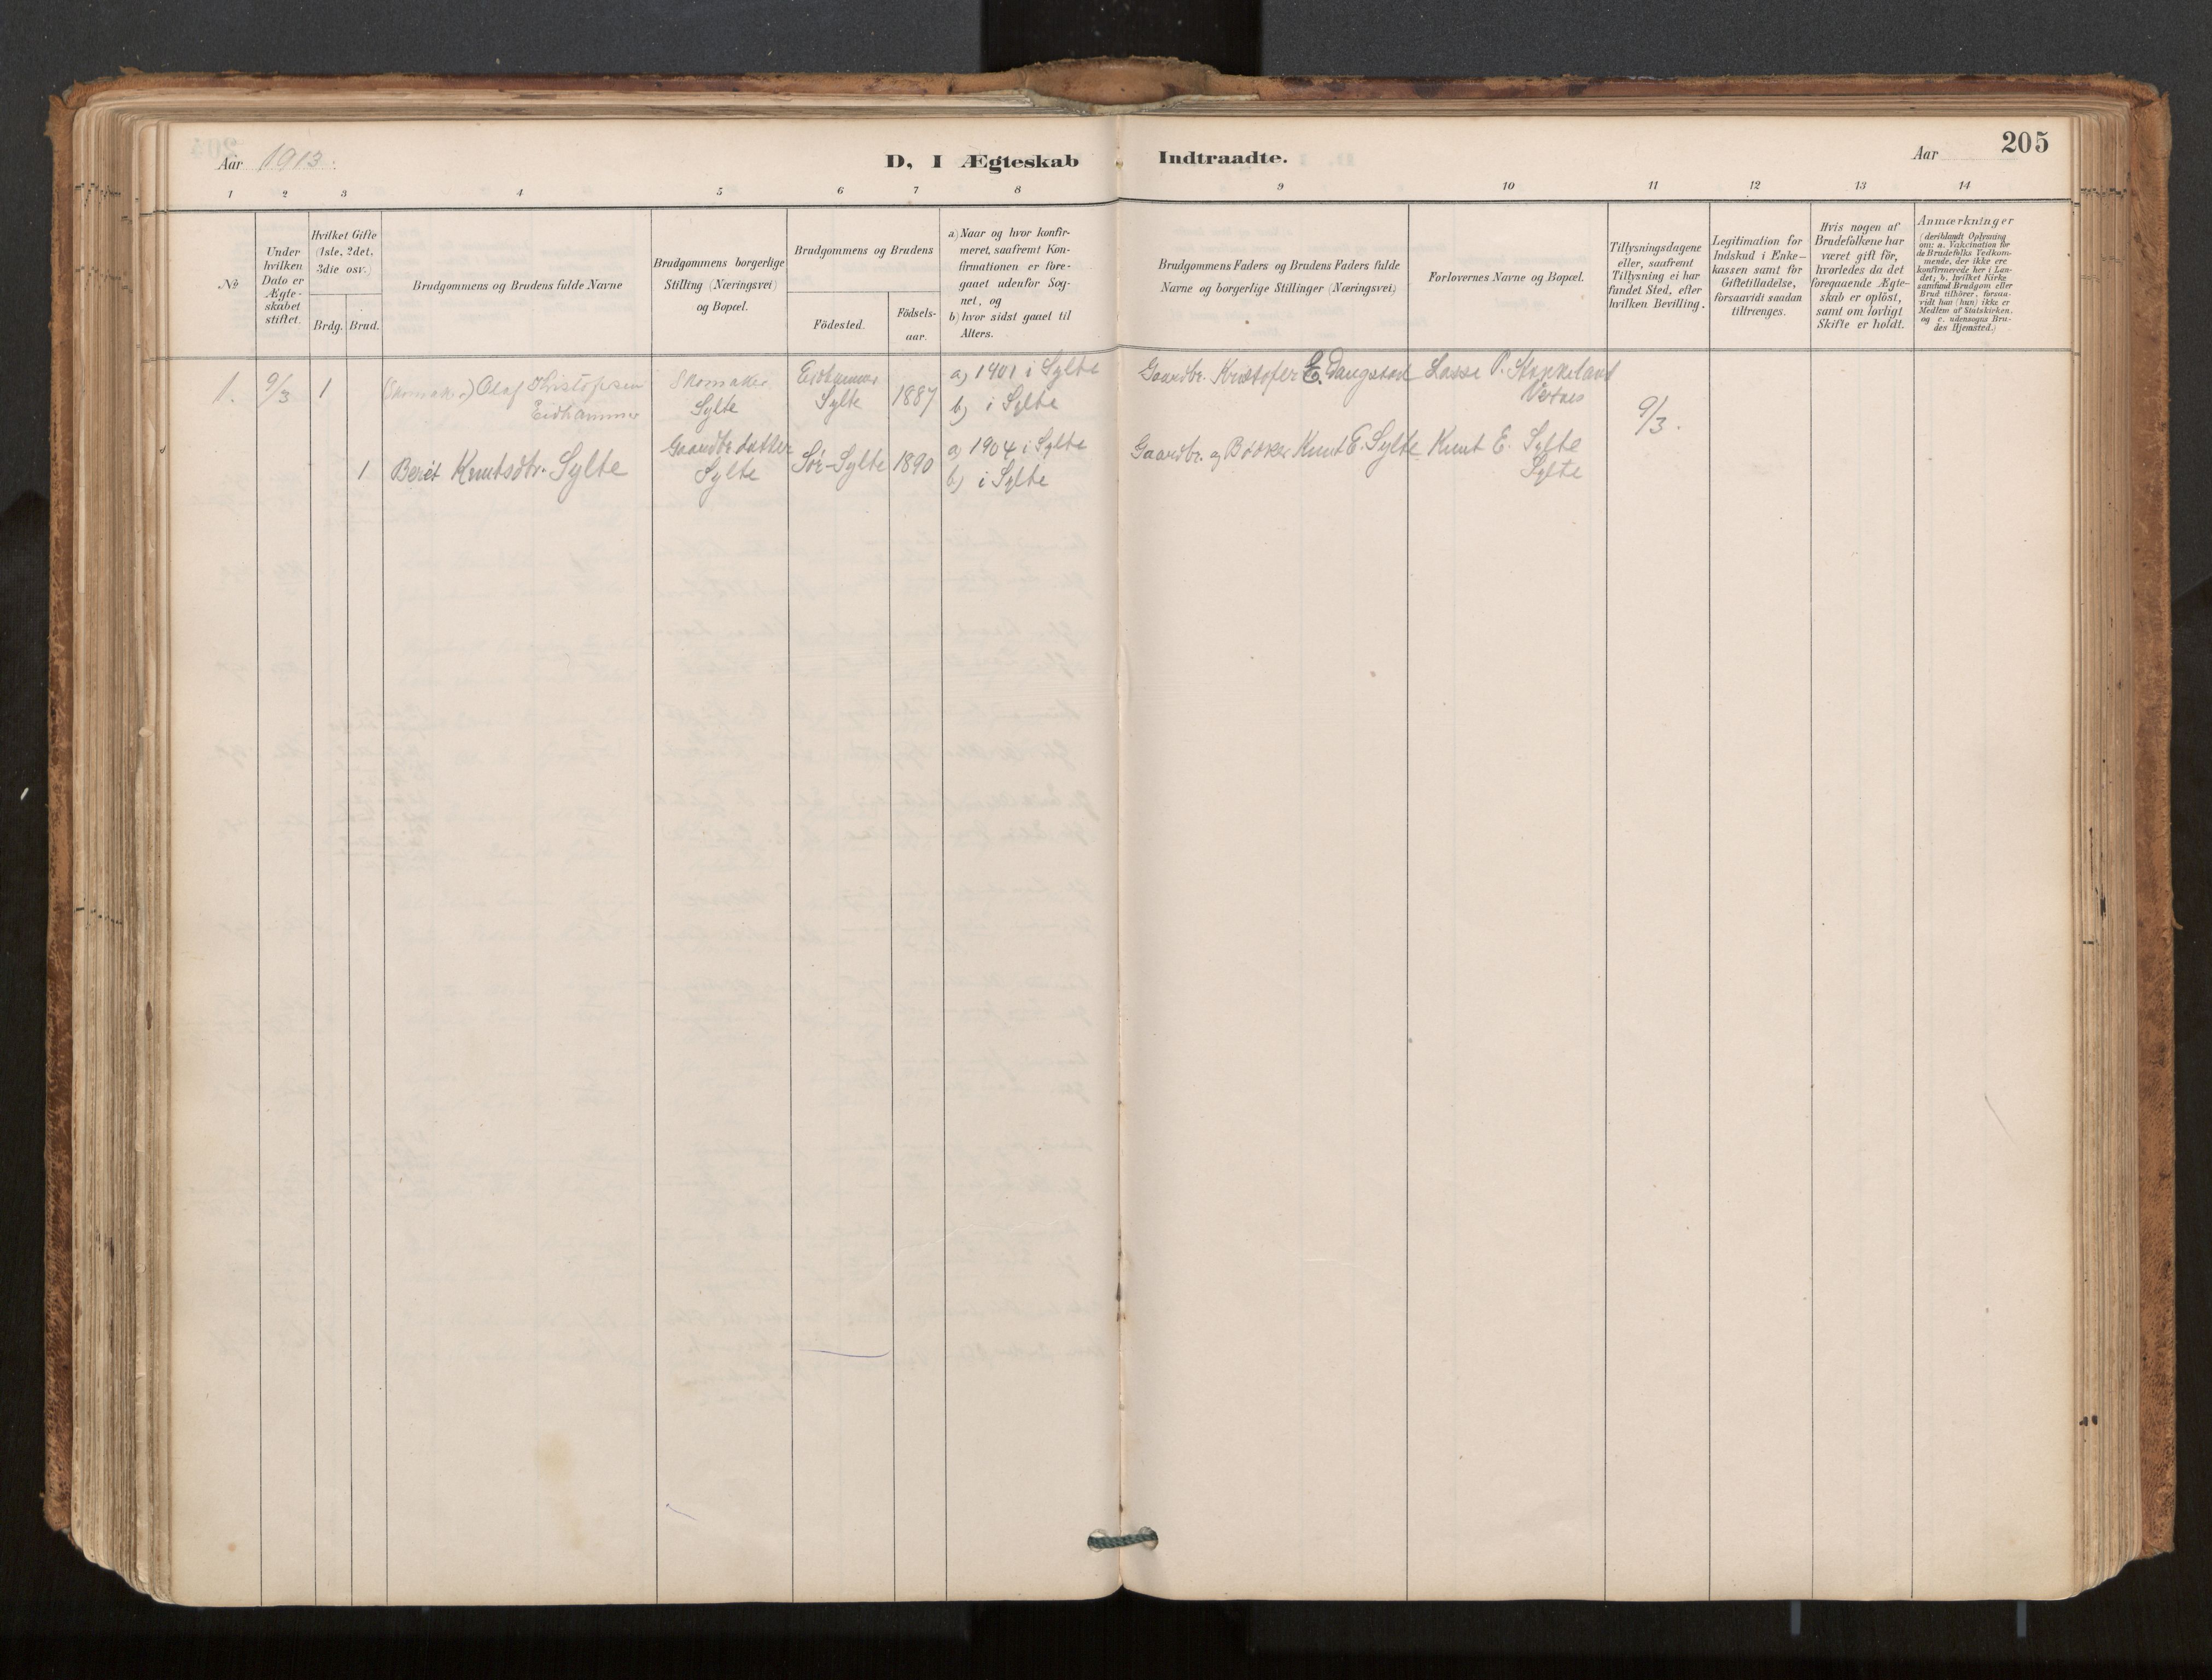 205
Aar 1913.
D, I Ægteskab Indtraadte.
Aar
1 2 3 4 5 6 7 8 9 10 11 12 13 14
No
Under
hvilken
Dato er
Ægte-
skabet
stiftet.
Hvilket Gifte
(1ste, 2det,
3die osv.)
Brdg. Brud.
Brudgommens og Brudens fulde Navne
Brudgommens borgerlige
Stilling (Næringsvei)
og Bopæl.
Brudgommens og Brudens
Födested.
Födsels-
aar.
a) Naar og hvor konfir-
meret, saafremt Kon-
firmationen er fore-
gaaet udenfor Sog-
net, og
b) hvor sidst gaaet til
Alters.
Brudgommens Faders og Brudens Faders fulde
Navne og borgerlige Stillinger (Næringsvei)
Forlovernes Navne og Bopæl.
Tillysningsdagene
eller, saafremt
Tillysning ei har
fundet Sted, efter
hvilken Bevilling.
Legitimation for
Indskud i Enke-
kassen samt for
Giftetilladelse,
forsaavidt saadan
tiltrænges.
Hvis nogen af
Brudefolkene har
været gift för,
hvorledes da det
foregaaende Ægte-
skab er oplöst,
samt om lovligt
Skifte er holdt.
Anmærkninger
(deriblandt Oplysning
om: a. Vakcination for
de Brudefolks Vedkom-
mende, der ikke ere
konfirmerede her i Lan-
det; b. hvilket Kirke
samfund Brudgom eller
Brud tilhörer, forsaa-
vidt han (hun) ikke er
Medlem af Statskirken.
og c. udensogns Bru-
des Hjemsted.)
1. 9/3 1
(Skomaker) Olaf Kristofersen
Eidhammer
Skomaker
Sylte
Eidhammer
Sylte
1887
a) 1901 i Sylte
b) i Sylte
Gaardbr. Kristofer E. Vangstad
Lasse P. Stokkeland
9/3.
1 Berit Knutsdtr. Sylte
Gaardbr. datter
Sylte
Sör-Sylte
1890
a) 1904 i Sylte
b) i Sylte
Gaardbr. og Bödker Knut E. Sylte
Knut E. Sylte
Sylte